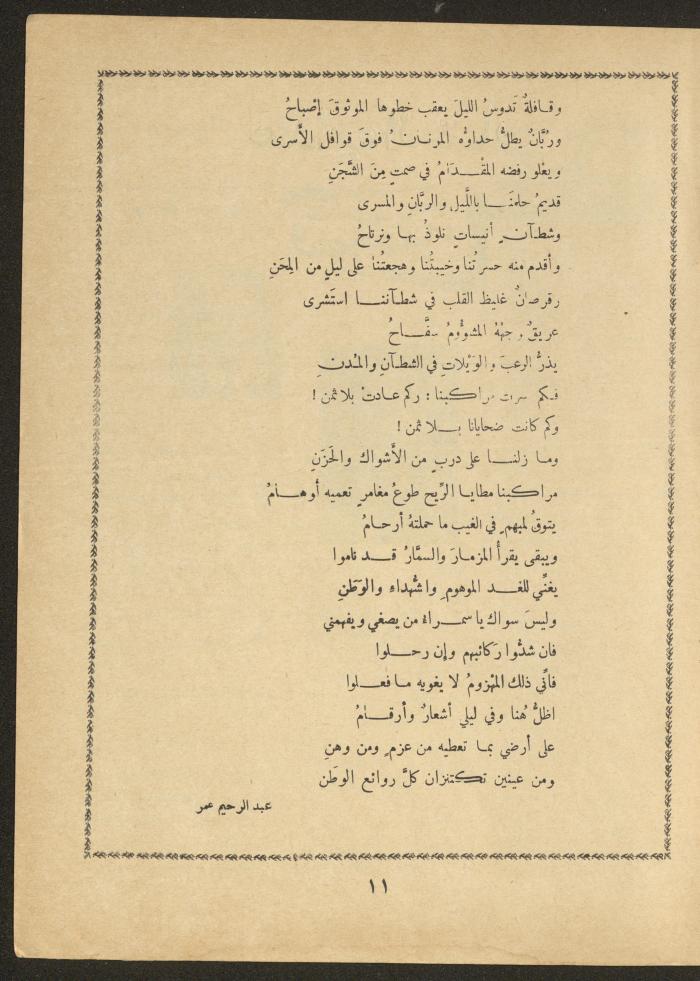 وقافلةٌ تَدوسُ الليلَ يعقب خطوها الموثوقَ إصْباحُ
ورُبَّانٌ يطلُّ حداوُه المرنانُ فوقَ قوافل الأسرى
ويعْلو رفضه المقْدَامُ في صمتٍ مِنَ الشَّجَنِ
قديمُ حلمنَا باللَّيلِ والربَّانِ والمسرى
وشطآنٍ أنيساتٍ نلوذُ بها ونرتاحُ
وأقدم منه حسرتُنا وخيبتُنا وهجعتُنا على ليلٍ من المِحَنِ
وقرصانٌ غليظ القلب في شطآننا استَشرى
عريقٌ وجههُ المشؤومُ سفَّاحُ
يذرُّ الرعبَ والوَيْلاتِ في الشطآنِ والمُدنِ
فكم سرت مراكبنا : وكم عادتْ بلا ثمن !
وكم كانت ضحايانا بلا ثمن !
وما زلنا على دربٍ من الأشواك والحَزَنِ
مراكبنا مطايا الرِّيح طوعُ مغامرٍ تعميه أوهامُ
يتوقُ لمبهمٍ في الغيب ما حملتهُ أرحامُ
ويبقى يقرأُ المزمارَ والسمَّارُ قد ناموا
يغنِّي للغد الموهومِ والشُّهداءِ والوَطَنِ
وليسَ سواك يا سمراءُ من يصغي ويفهمني
فان شدُّوا ركائبهم وإن رحلوا
فأنِّي ذلك المهْزومُ لا يغويه ما فعلوا
اظلُّ هُنا وفي ليلي أشعارٌ وأرقامُ
على أرضي بما تعطيه من عزمٍ ومن وهنِ
ومن عينين تكتنزان كلَّ روائع الوطَن
عبد الرحيم عمر
١١